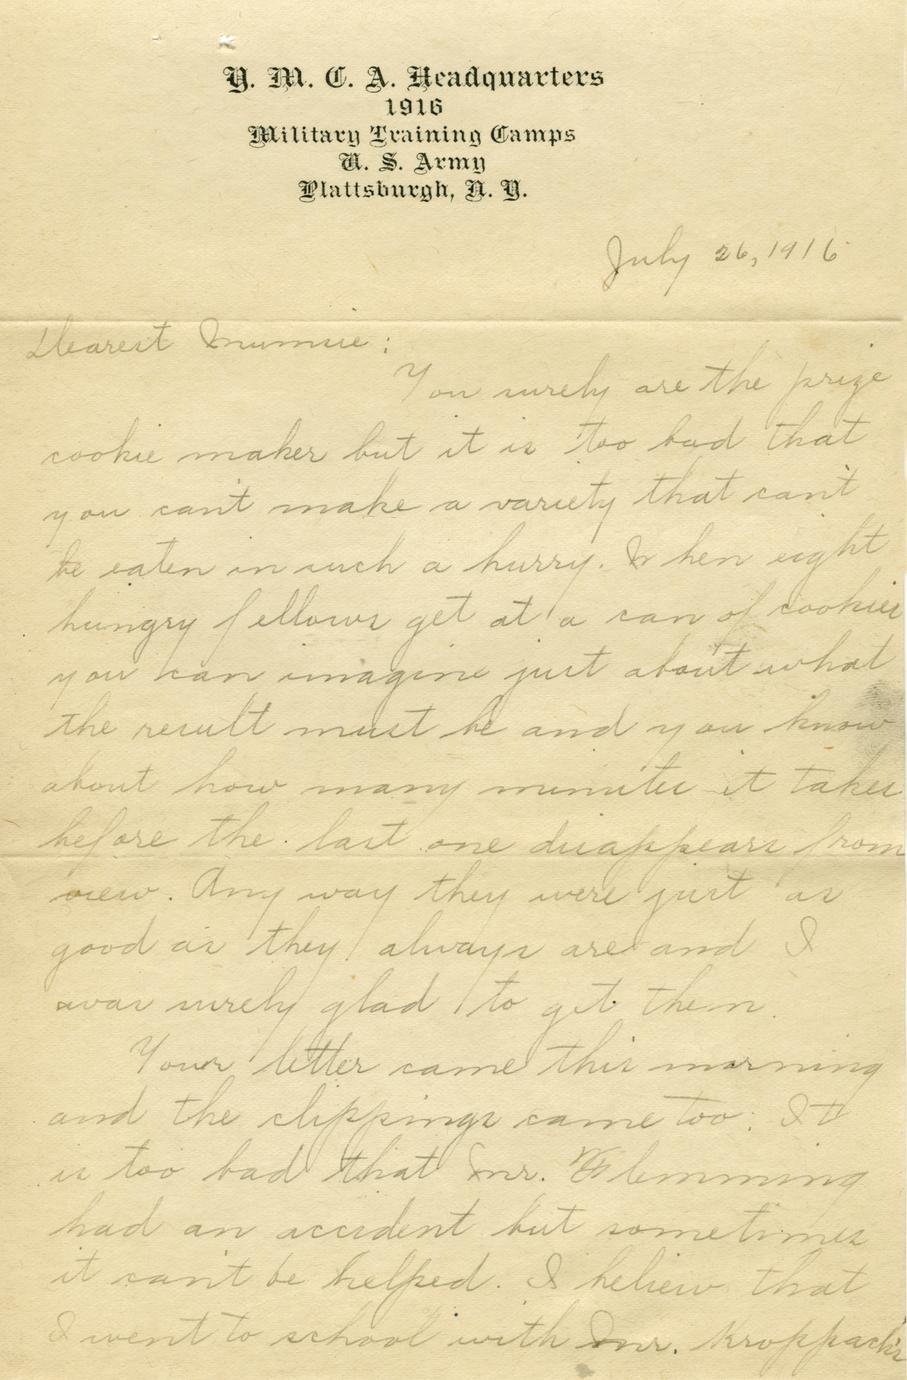 Y. M. C. A. Headquarters
1916
Military Training Camps
U. S. Army
Plattsburgh, N. Y.
July 26, 1916
Dearest Mumsie:
You surely are the prize
cookie maker but it is too bad that
you can't make a variety that can't
be eaten in such a hurry. When eight
hungry fellows get at a can of cookies
you can imagine just about what
the result must be and you know
about how many minutes it takes
before the last one disappears from
view. Any way they were just as
good as they always are and I
was surely glad to get them.
Your letter came this morning
and the clippings came too. It
is too bad that Mr. Flemming
had an accident but sometimes
it can't be helped. I believe that
I went to school with Mr. Kroppack's